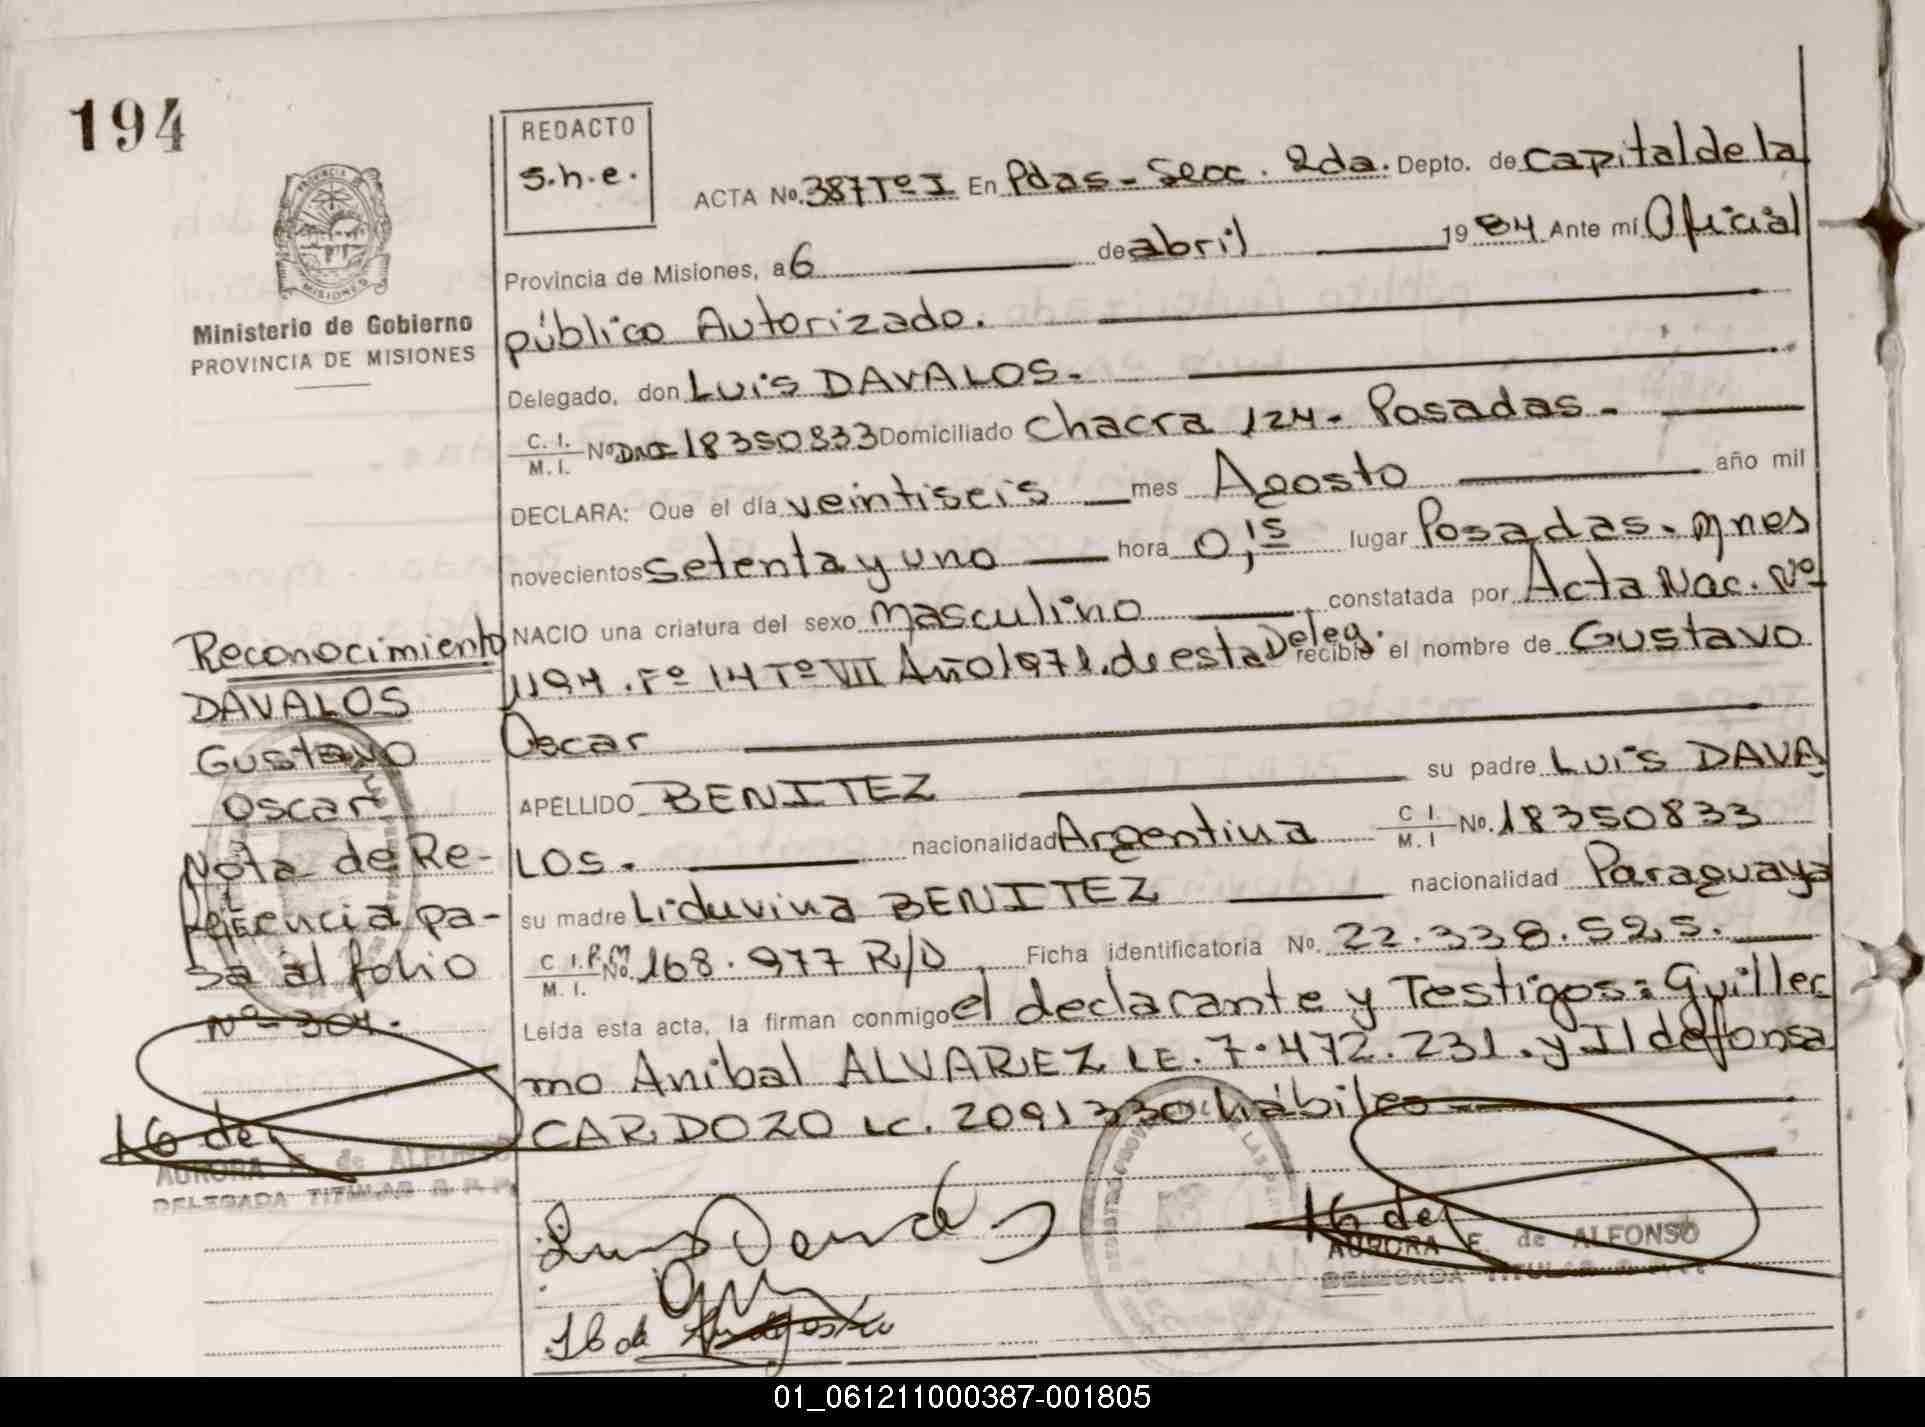 194
REDACTO
s.h.e.
PROVINCIA DE
MISIONES
Ministerio de Gobierno
PROVINCIA DE MISIONES
ACTA No. 387 Tº I En Pdas - Secc. 2da. Depto. de Capital de la
Provincia de Misiones, a 6 de abril 1984 Ante mí Oficial
público Autorizado.
Delegado, don Luis DAVALOS.-
C. I. / M. I. Nº DNI 18350833 Domiciliado Chacra 124 - Posadas -
DECLARA: Que el día veintiseis mes Agosto año mil
novecientos setenta y uno hora 0,15 lugar Posadas - Mnes
NACIO una criatura del sexo masculino constatada por Acta Nac. Nº
1194. Fº 14 Tº VII Año 1971. de esta Deleg. recibió el nombre de Gustavo
Oscar
APELLIDO BENITEZ su padre Luis DAVA
LOS. nacionalidad Argentina C I. / M. I No. 18350833
su madre Liduvina BENITEZ nacionalidad Paraguaya
C I.P.M / M. I. No. 168.977 R/D Ficha identificatoria No. 22.338.525.
Leída esta acta, la firman conmigo el declarante y Testigos: Guiller
mo Anibal ALVAREZ LE. 7.472.231. y Ildefonsa
CARDOZO LC. 2091330 hábiles
Reconocimiento
DAVALOS
Gustavo
Oscar
Nota de Re-
ferencia pa-
sa al folio
Nº 304.
AURORA E. de ALFONSO
DELEGADA TITULAR R. P. P.
AURORA E. de ALFONSO
DELEGADA TITULAR
01_061211000387-001805